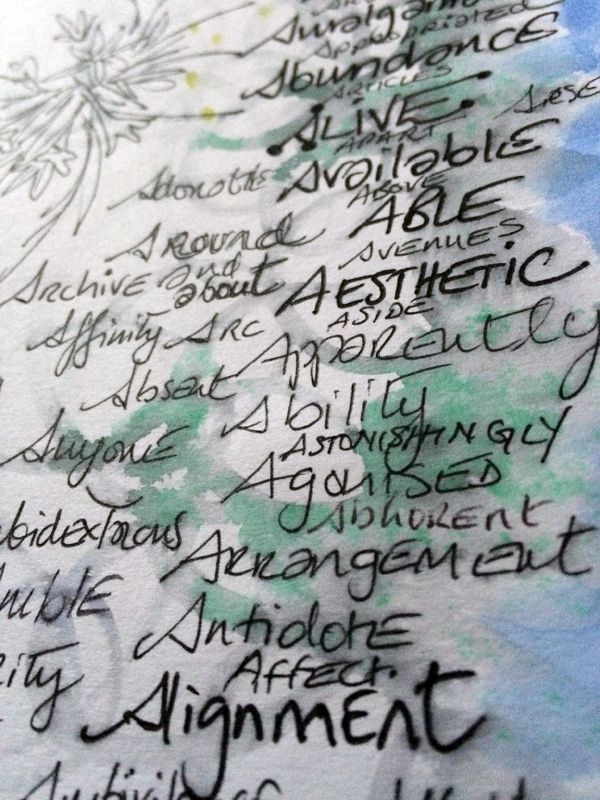 Amalgam
Appropriated
Abundance
ARTICLES
ALIVE
APART
Available
ABOVE
Around ABLE
AVENUES
Archive and about AESTHETIC
ASIDE
Affinity Arc Apparently
Absent Ability
Anyone ASTONISHINGLY
Agonised
bidextrous Abhorent
Arrangement
mble
Antidote
ity Affect.
Alignment